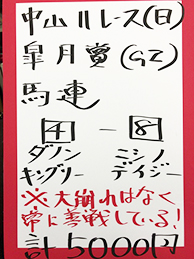 中山11レース(日)
皐月賞(GI)
馬連
4 - 8
ダノン ミシノ
キングリー デイジー
※大崩れはなく
常に善戦している！
計5000円